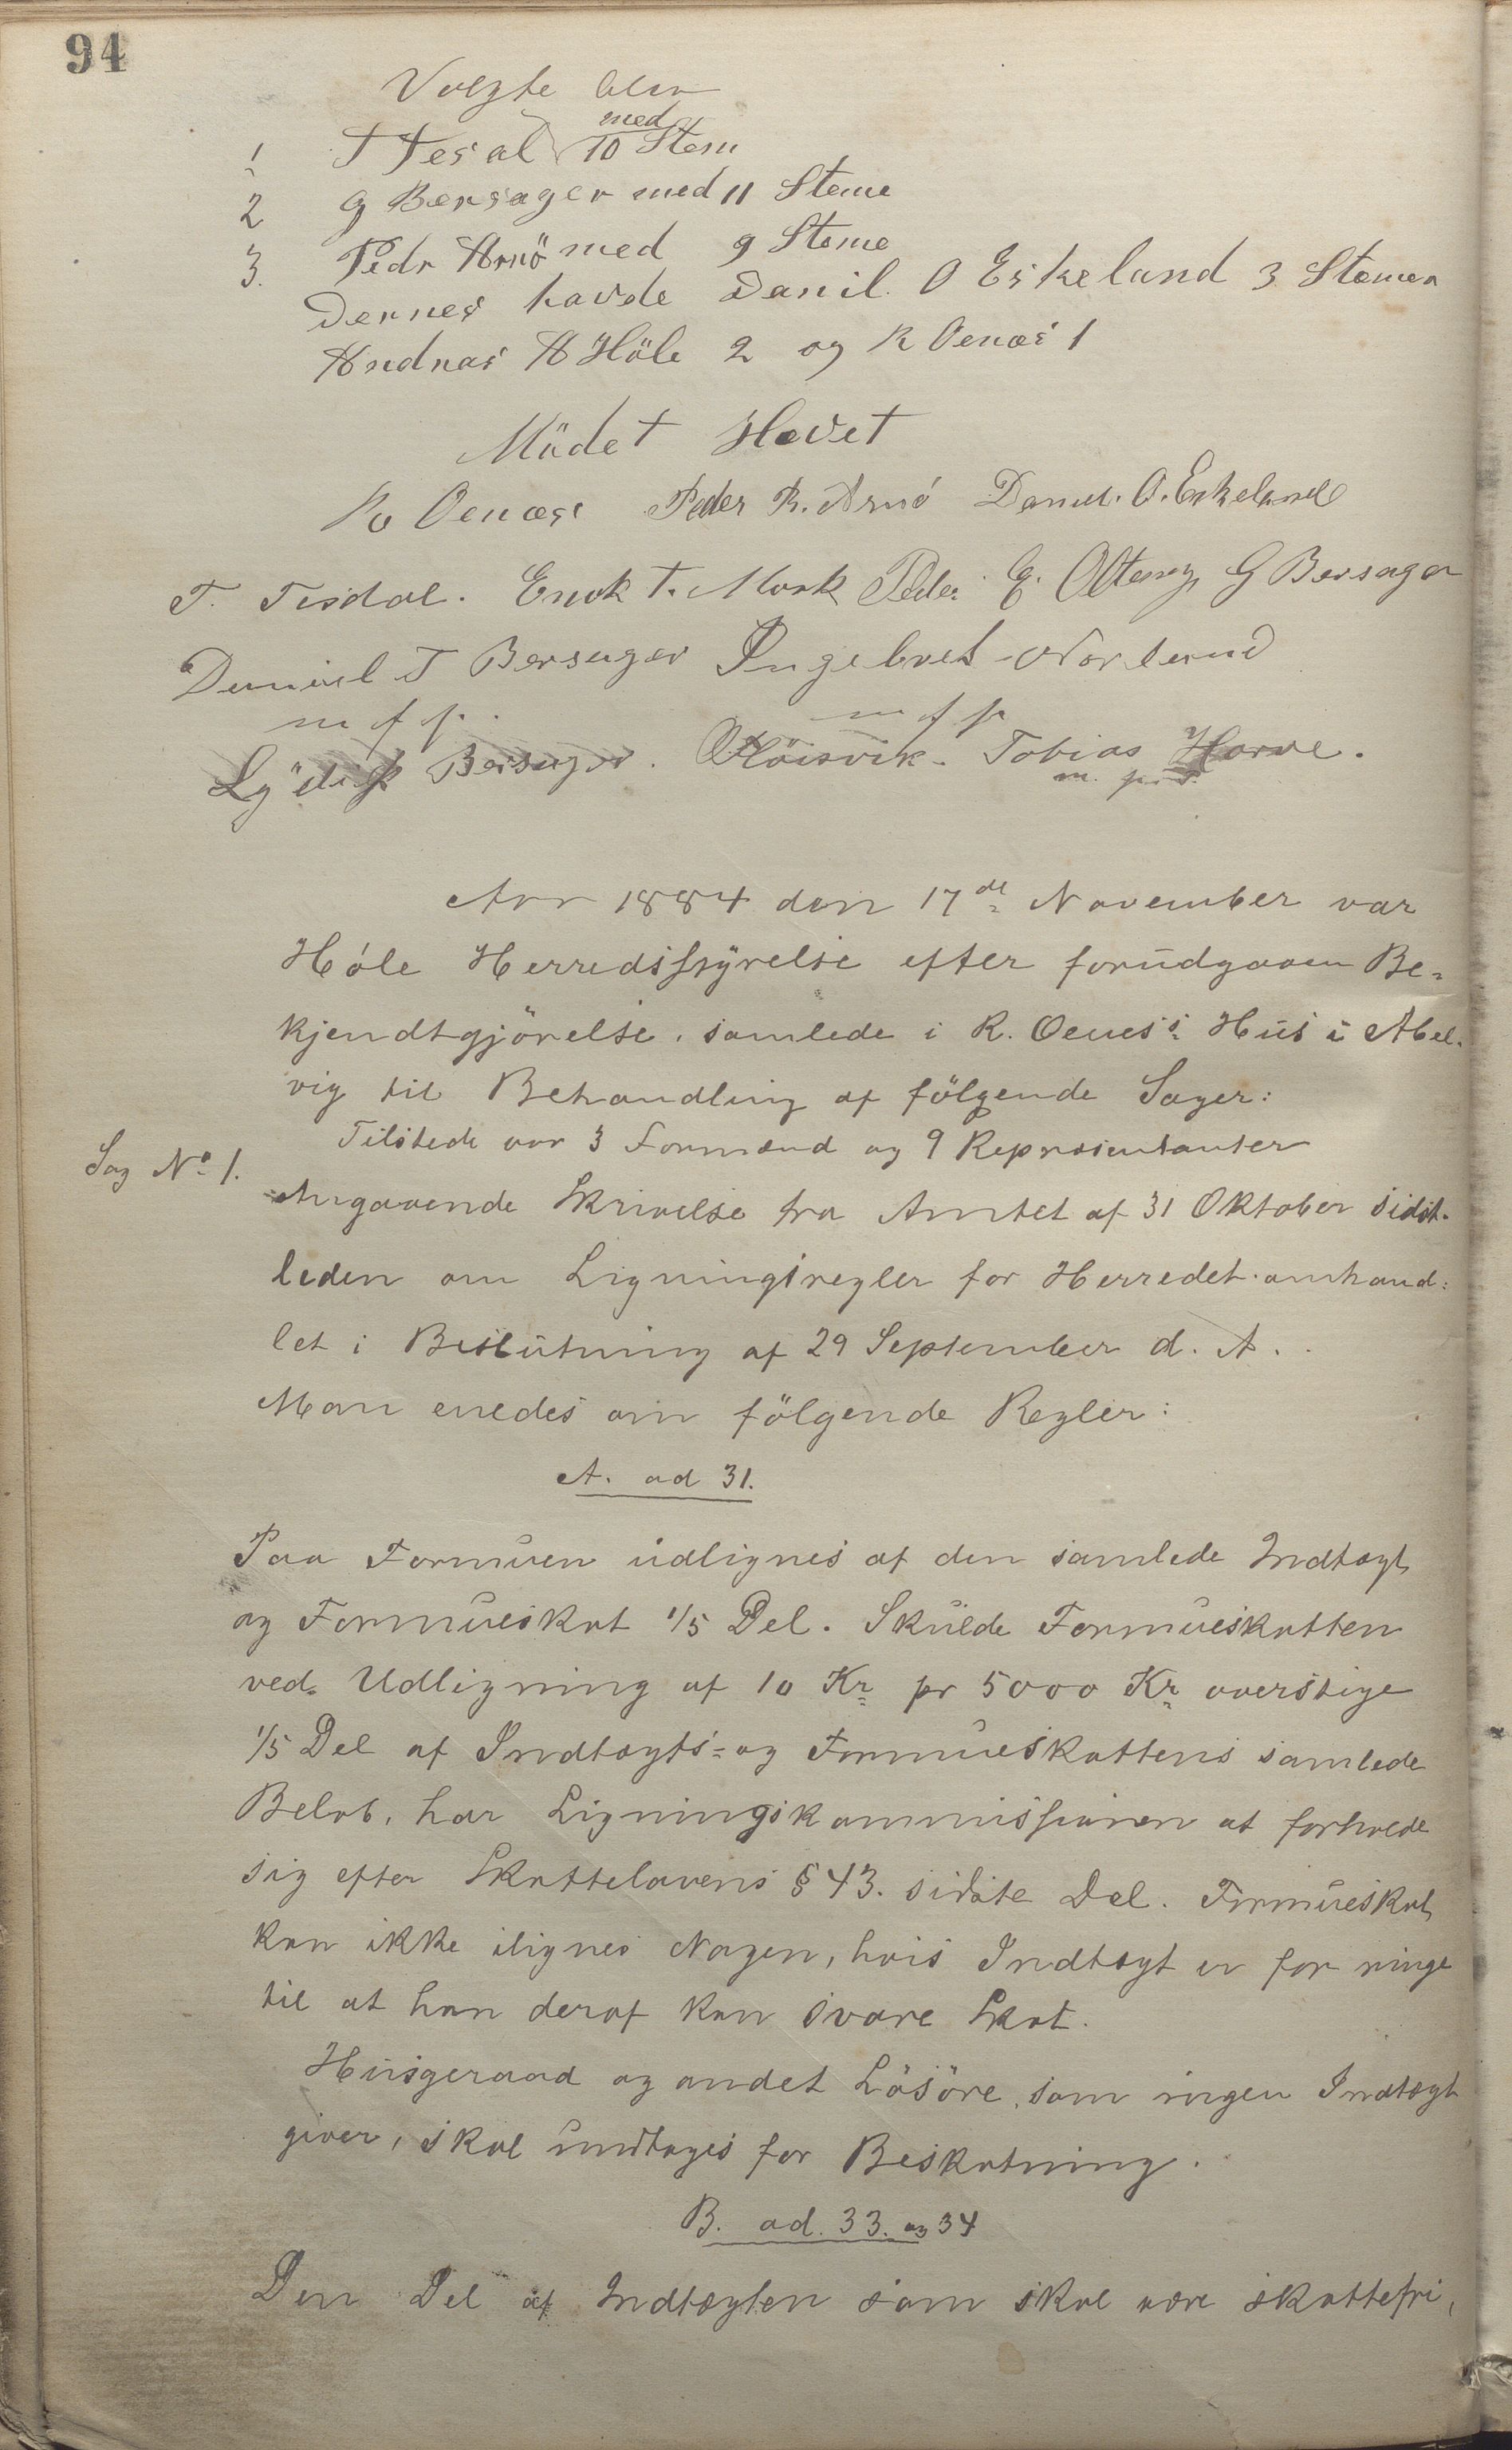 94
Valgte blev
1 T Tesal med 10 Stem
2 G Bersager med 11 Steme
3. Pedr Arnö med 9 Steme
Dernes havde Danil O Eskeland 3 Stemer
Andreas A Höle 2 og R Oenæs 1
Mödet Hævet
R Oenæs Peder R. Arnö Daniel. O. Eskeland
T. Tesdal. Enok T. Mork Peder E. G Bersager
Daniel T Bersager Ingebret Norland
m f p. m f p
Lÿder Bersager. Höisvik. Tobias Harve.
m. p.
Aar 1884 den 17de November var
Höle Herredsstyrelse efter forudgaaen Be-
kjendtgjörelse, samlede i R. Oenes's Hus i Abel-
vig til Behandling af fölgende Sager:
Tilstede var 3 Formænd og 9 Repræsentanter
Sag No 1.
Angaaende Skrivelse fra Amtet af 31 Oktober sidst-
leden om Ligningsregler for Herredet omhand-
let i Beslutning af 29 September d. A.
Man enedes om fölgende Regler:
A. ad 31.
Paa Formuen udlignes af den samlede Indtægt
og Formueskat 1/5 Del. Skulde Formueskatten
ved Udligning af 10 Kr pr 5000 Kr overstige
1/5 Del af Indtægts- og Formueskattens samlede
Beløb, har Ligningskommissionen at forholde
sig efter Skattelovens § 43. sidste Del. Formueskat
kan ikke ilignes Nogen, hvis Indtægt er for ringe
til at han deraf kan svare Skat.
Husgeraad og andet Lösöre, som ingen Indtægt
giver, skal undtages for Beskatning.
B. ad. 33. og 34
Den Del af Indtægten som skal være skattefri,